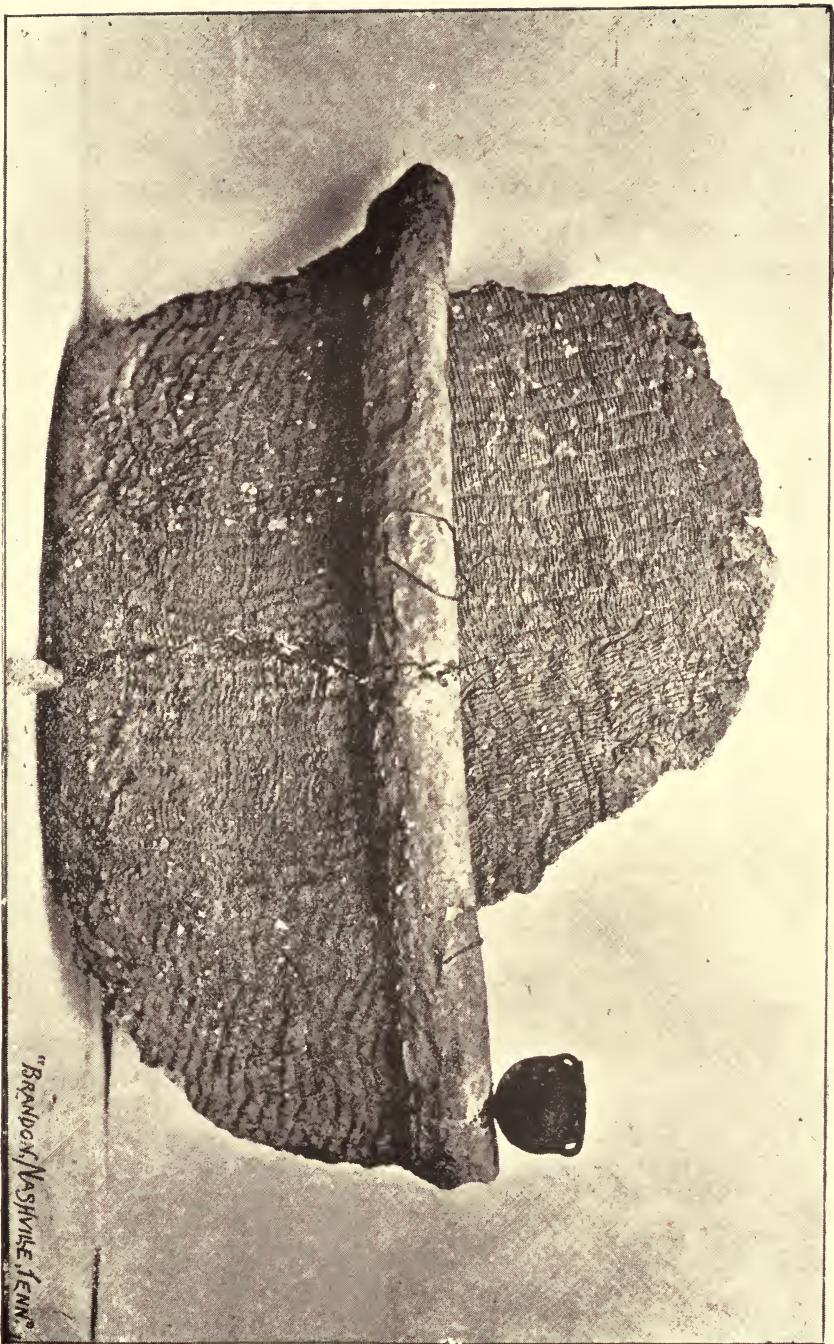 "BRANDON, NASHVILLE, TENN."